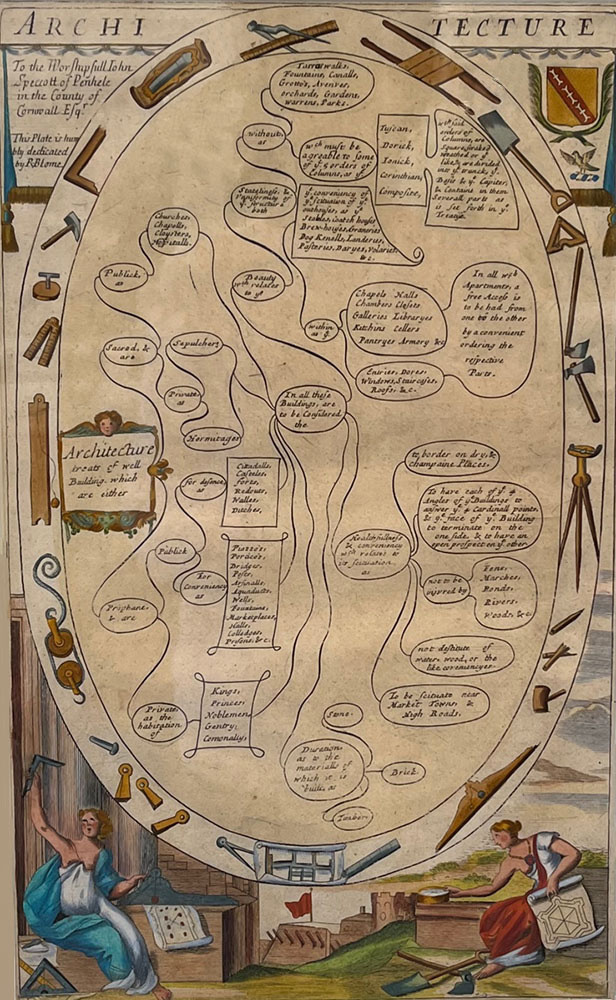 ARCHI TECTURE
To the Worshipfull Iohn
Speccott of Penhele
in the County of
Cornwall Esqr.
This Plate is hum
bly dedicated
by R.Blome.
Tarraswalks,
Fountains, Canalls,
Grotto's, Avenves,
orchards, Gardens,
warrens, Parks.
without,
as
wch must be
agreable to some
of ye 5 orders of
Columns, as ye
Tuscan,
Dorick,
Ionick,
Corinthian,
Composite,
wch said
orders of
Columns, are
Square, fluked
wreathed or ye
like, & are divided
into ye trunck, ye
Basis & ye Capiter;
& Containe in them
Severall parts as
is set forth in ye
Treatise.
Stateliness &
Vuniformity of
ye structure
both
ye conveniency of
ye scituation of ye
outhouses, as ye
Stables, Coatch houses
Brew-houses, Granaries
Dog Kenells, Landeries,
Pastories, Daryes, Volaries,
&c.
Churches,
Chapells,
Cloysters,
Hospitalls.
Publick,
as
Beauty
wch relates
to ye
within
as ye
Chapels Halls
Chambers Closets
Galleries Libraryes
Kitchins Cellers
Pantryes Armory &c
In all wch
Apartments, a
free Access is
to be had from
one to the other
by a convenient
ordering the
respective
Parts.
Entries, Dores,
Windows, Staircases,
Roofs, &c.
Sacred, &
are
Sepulcher,
Private,
as
Hermitages
In all these
Buildings, are
to be Considered
the
Architecture
treats of well
Building, which
are either
for defence,
as
Cittadalls,
Casteles,
Forts,
Redouts,
Walles,
Ditches,
to border on dry, &
champaine Places.
To have each of ye 4
Angles of ye Buildings to
answer ye 4 Cardinall points,
& ye face of ye Building
to terminate on the
one side, & to have an
open prospect on ye other.
Healthfullness
& conveniency
wch relates to
its scituation
as
Publick
for
Conveniency
as
Piazzo's,
Portico's,
Bridges,
Arsinalls,
Aquaducts,
Wells,
Fountains,
Marketplaces,
Halls,
Colledges,
Prisons, &c.
not to be
injured by
Fens,
Marches,
Ponds,
Rivers,
Woods, &c.
Prophane,
& are
not destitute of
water, wood, or the
like conveniencyes.
Private,
as the
habitation
of
Kings,
Princes,
Noblemen,
Gentry,
Comonaliy,
To be scituate near
Market Towns, &
High Roads.
Stone.
Duration,
as to the
materialls of
which it is
built, as
Brick.
Timber.